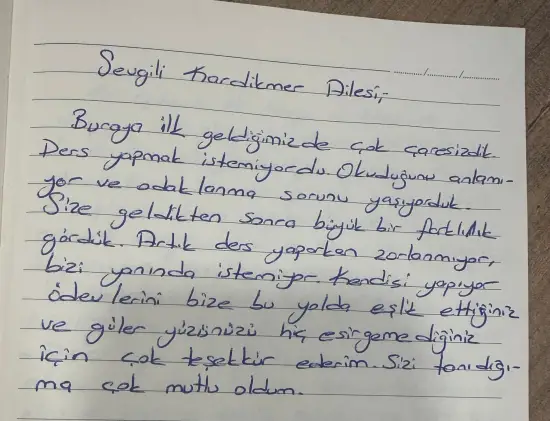 ...../...../.....
Sevgili Hardikmer Ailesi;
Buraya ilk geldiğimizde çok çaresizdik.
Ders yapmak istemiyordu. Okuduğunu anlamı-
yor ve odaklanma sorunu yaşıyorduk.
Size geldikten sonra büyük bir farklılık
gördük. Artık ders yaparken zorlanmıyor,
bizi yanında istemiyor. Kendisi yapıyor
ödevlerini bize bu yolda eşlik ettiğiniz
ve güler yüzünüzü hiç esirgemediğiniz
için çok teşekkür ederim. Sizi tanıdığı-
ma çok mutlu oldum.